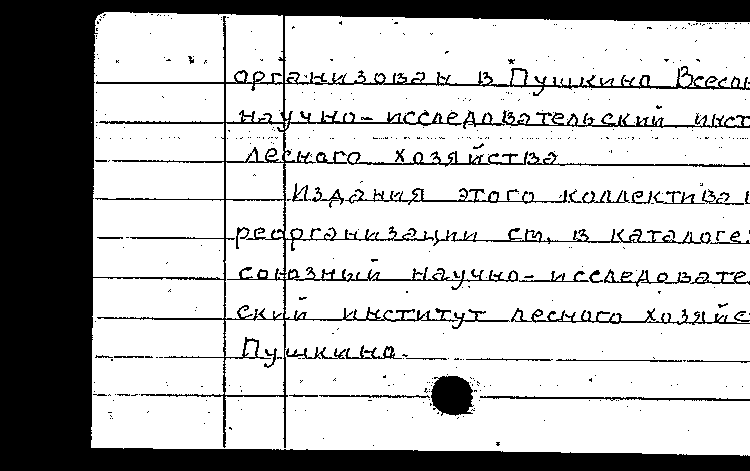 организован в Пушкино Всесою
научно-исследовательский инст
лесного хозяйства
Издания этого коллектива п
реорганизации см. в каталоге:
союзный научно-исследовате
ский институт лесного хозяйс
Пушкино.